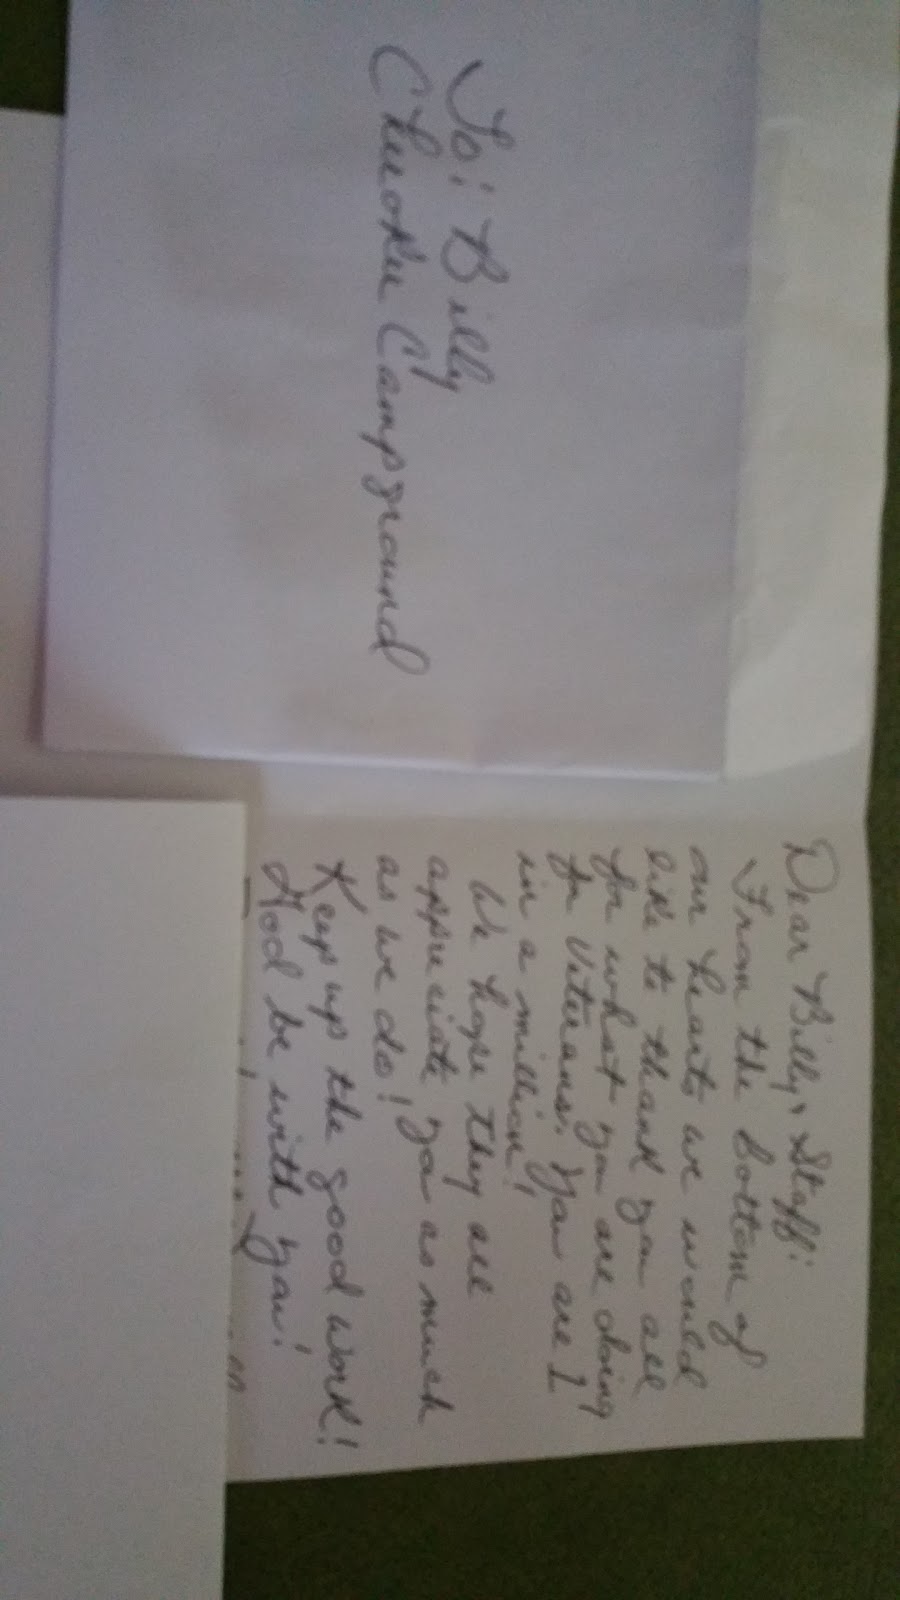 To: Billy
Cherokee Campground
Dear Billy & Staff:
From the bottom of
our hearts we would
like to thank you all
for what you are doing
for Veterans. You are 1
in a million!
We hope they all
appreciate you as much
as we do!
Keep up the good work!
God be with you!